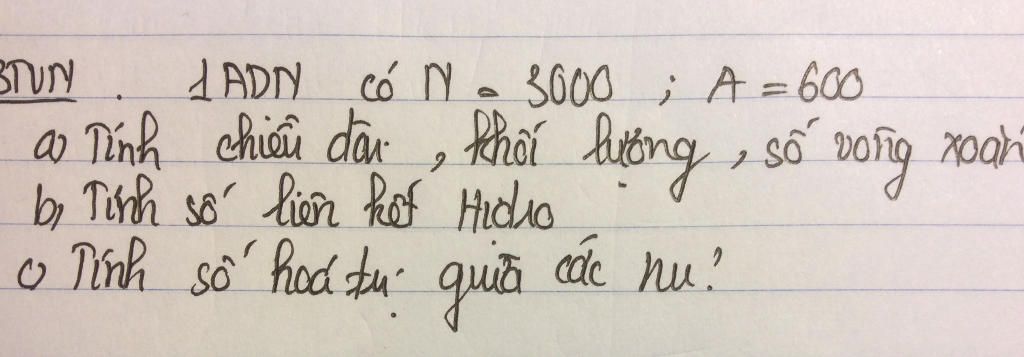 BTVN . 1 ADN có N = 3000 ; A = 600
a) Tính chiều dài , khối lượng , số vòng xoắn
b) Tính số liên kết Hidro
c) Tính số hoá trị giữa các nu ?